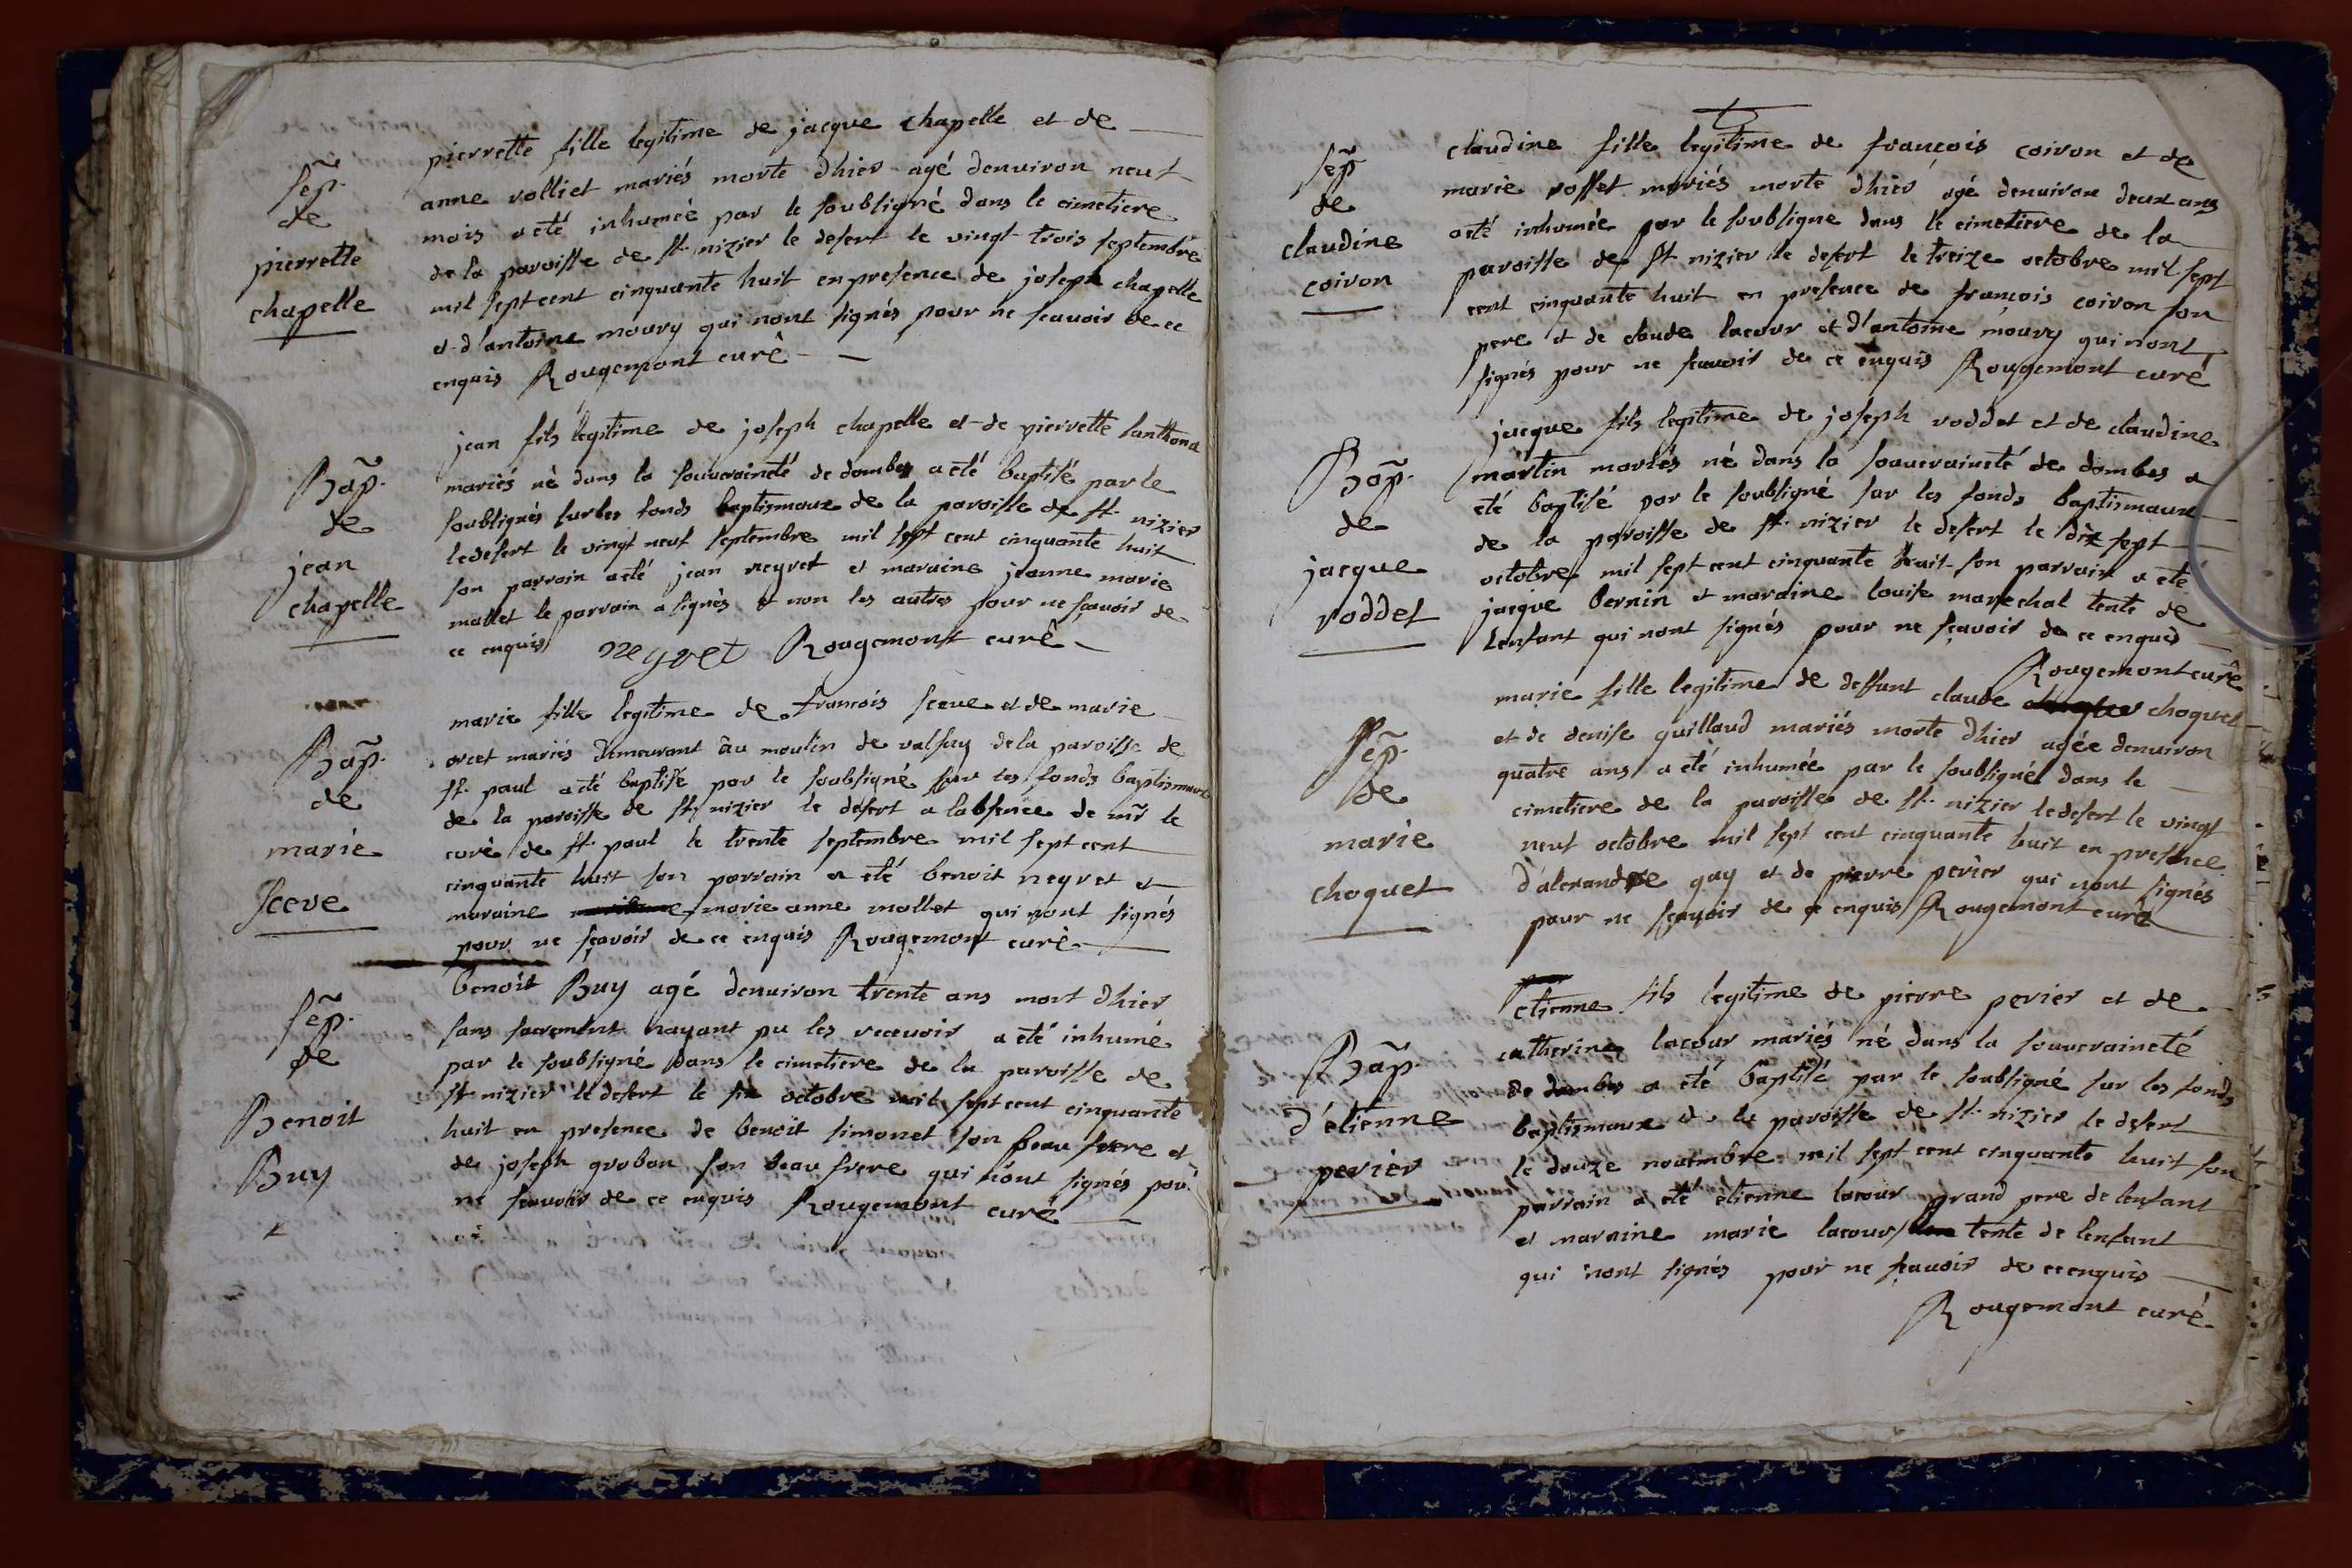 sep.
de
pierrette
chapelle
pierrette fille legitime de jacque chapelle et de
anne volliet mariés morte dhier agé denuiron neuf
mois a eté inhumée par le soubsigné dans le cimetiere
de la paroisse de st. nizier le desert le vingt trois septembre
mil sept cent cinquante huit en presence de joseph chapelle
et d'antoine moury qui nont signés pour ne scauoir de ce
enquis Rougemont curé
Bap.
de
jean
chapelle
jean fils legitime de joseph chapelle et de pierrette
mariés né dans la souueraineté de dombes a eté baptisé par le
soubsignés sur les fonds baptismaux de la paroisse de st. nizier
le desert le vingt neuf septembre mil sept cent cinquante huit
son parrain a eté jean neyret et maraine jeanne marie
mallet le parrain a signés et non les autres pour ne sçauoir de
ce enquis neyret Rougemont curé
Bap.
de
marie
sceve
marie fille legitime de francois sceue et de marie
orcet mariés demeurant au moulin de valfay de la paroisse de
st. paul a eté baptisé par le soubsigné sur les fonds baptismaux
de la paroisse de st. nizier le desert a labsence de mr le
curé de st. paul le trente septembre mil sept cent
cinquante huit son parrain a eté benoit neyret et
maraine marie anne mollet qui nont signés
pour ne sçavoir de ce enquis Rougemont curé
sep.
de
Benoit
Buy
benoit Buy agé denuiron trente ans mort dhier
sans sacrement nayant pu les receuoir a eté inhumé
par le soubsigné dans le cimetiere de la paroisse de
st. nizier le desert le six octobre mil sept cent cinquante
huit en presence de benoit simonet son beau frere et
de joseph grobon son beau frere qui nont signés pour
ne scauoir de ce enquis Rougemont curé
sep
de
claudine
coiron
claudine fille legitime de françois coiron et de
marie rosset mariés morte dhier agé denuiron deux ans
a eté inhumée par le soubsigne dans le cimetiere de la
paroisse de st nizier le desert le treize octobre mil sept
cent cinquante huit en presence de françois coiron son
pere et de claude lacour et d'antoine moury qui nont
signés pour ne scauoir de ce enquis Rougemont curé
Bap.
de
jacque
voddet
jacque fils legitime de joseph voddet et de claudine
martin mariés né dans la souueraineté de dombes a
eté baptisé par le soubsigné sur les fonds baptismaux
de la paroisse de st. nizier le desert le dix sept
octobre mil sept cent cinquante huit son parrain a eté
jacque bernin et maraine louise marechal tente de
lenfant qui nont signés pour ne sçavoir de ce enquis
Rougemont curé
sep.
de
marie
choquet
marie fille legitime de deffunt claude choquet
et de denise guillaud mariés morte dhier agée denuiron
quatre ans a eté inhumée par le soubsigné dans le
cimetiere de la paroisse de st. nizier le desert le vingt
neuf octobre mil sept cent cinquante huit en presence
d'alexandre guy et de pierre perier qui nont signés
pour ne sçauoir de ce enquis Rougemont curé
Bap.
d'étienne
perier
etienne fils legitime de pierre perier et de
catherine lacour mariés né dans la souueraineté
de dombes a eté baptisé par le soubsigné sur les fonds
baptismaux de la paroisse de st. nizier le desert
le douze nouembre mil sept cent cinquante huit son
parrain a eté etienne lacour grand pere de lenfant
et maraine marie lacour tente de lenfant
qui nont signés pour ne scauoir de ce enquis
Rougemont curé